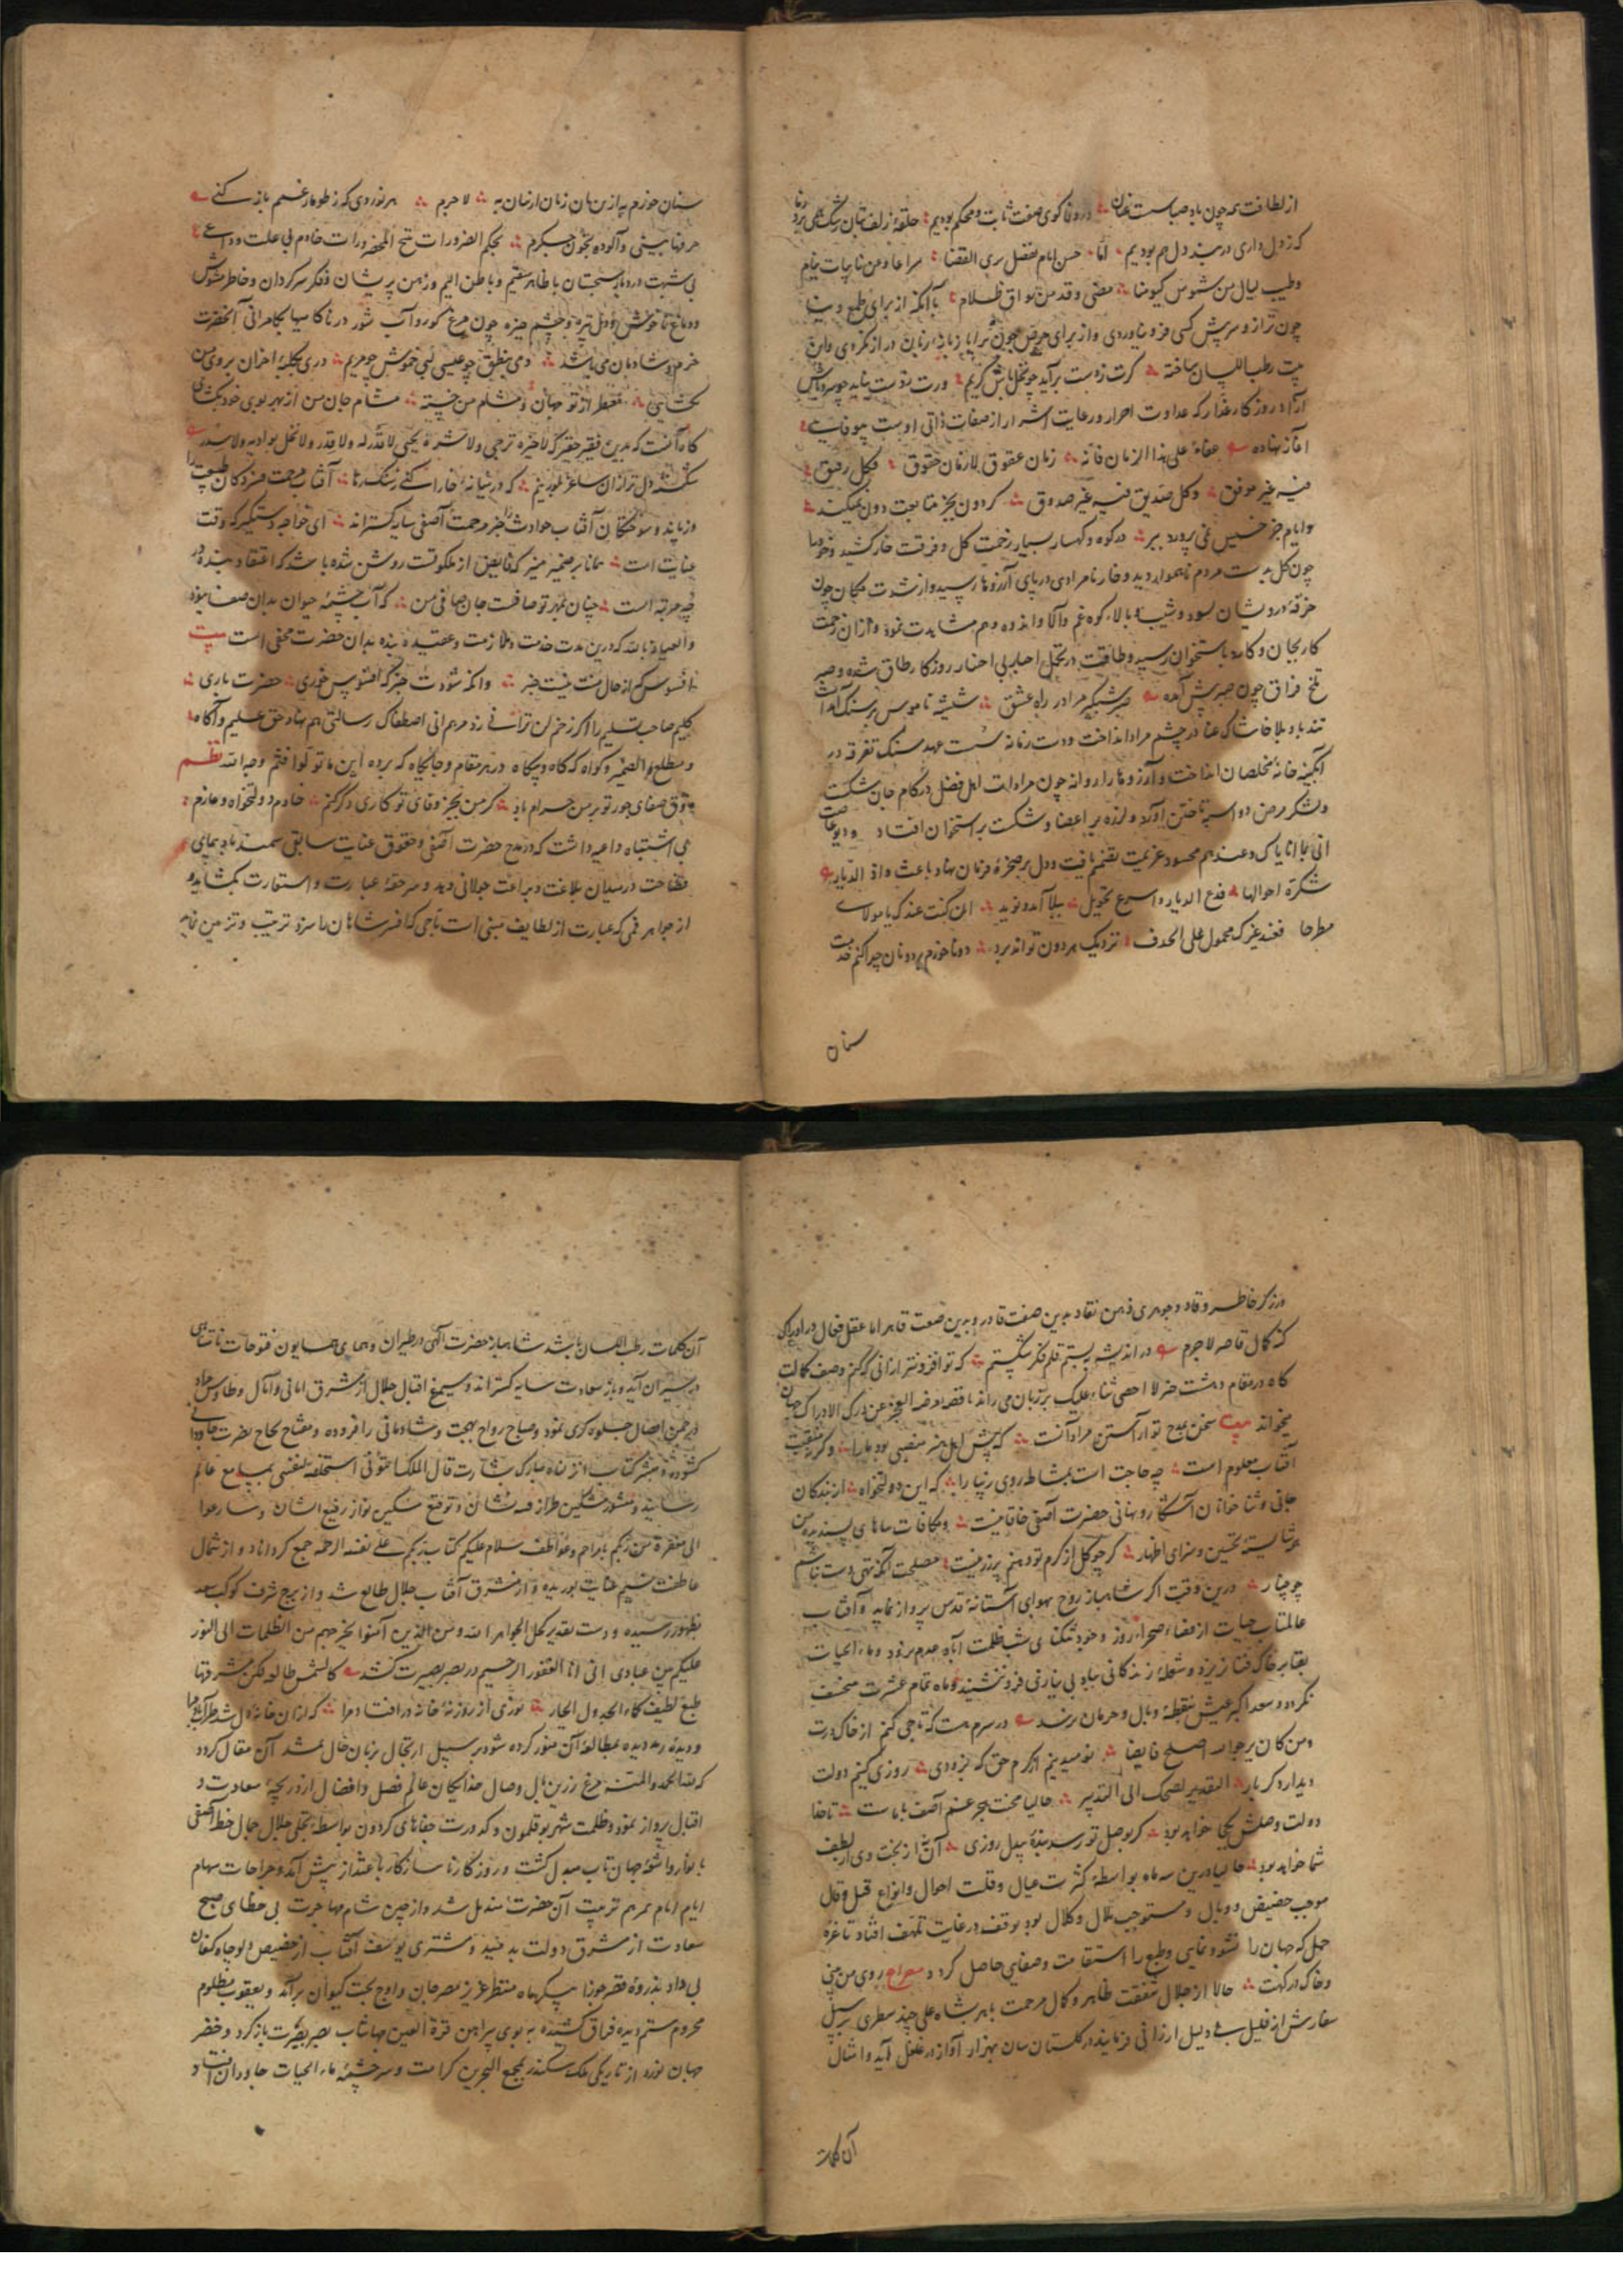 از لطافت همه چون باد صباست عنان در وفا کوی صفت ثابت و محکم بودیم حلقهٔ زلف بتان رشک
که ز دل داری در بند دل هم بودیم اما حسن ایام لفصل بری القضا مرا عا و من نایبات
وطیب لیال من شموس کیوسنا مضی وقد من بواق ظلام با آنکه از برای طمع
چون ترازو سر پیش کسی فرو نیاوردی و از برای حرص چون
رطب اللسان ساخته کرت ز دست برآید چو نخل باش کریم ورت ز دست نیاید چو سرو باش
آزاد روزکار غدار که عداوت احرار و رعایت اشرار از صفات ذاتی اوست بیوفایی
آغاز نهاده عفاء علی هذا الزمان فانه زمان عقوق لا زمان حقوق فکل رفیق
فیه غیر موفق وکل صدیق فیه غیر صدوق کردون بجز متابعت دون نمیکند
وایام جز خسیس نمی پرورد ببر در کوه و کهسار بسیار زحمت کل و فرقت خار کشید
چون کل بدست مردم ناهموار دید و خار نامرادی در پای آرزوها رسید و از شدت مکان چون
خرقهٔ درویشان بسود و شیب و بالا کوه غم و آلا و اندوه و هم مشاهدت نمود و از آن زحمت
کار بجان و کارد باستخوان رسید و طاقت در تحمل احبار بی اختیار روزکار طاق شده و صبر
تلخ فراق چون صبر پیش آمده صبر شبکیر مرا در راه عشق شیشهٔ ناموس بر سنک آمد
تندباد بلا خاشاک عنا در چشم مراد انداخت و دست زمانه سست عهد سنک تفرقه در
آبکینه خانهٔ مخلصان انداخت و آرزوها را روانه چون مرادات اهل فضل در کام جان شکست
ولشکر مرض دواسبه تاختن آورد و لرزه بر اعضا و شکست بر استخوان افتاد
عزیمت تصمیم یافت و دل بر صخرهٔ فرمان نهاد باعث واذ الدیار
تنکرة احوالها فدع الدیار واسرع تحویل بیلا آمد و نوید الن کنت عندک یا مولای
مطرحا فعند غیرک محمول علی الحدف نزدیک هر دون نتواند برد دونا خورم بر دونان چرا کنم خدمت
سنان
سنان خورم به ازین نان زنان ازمان به لاجرم هر نوردی که ز طومار غمم باز کنی
حرفها بینی و آلوده بخون جکرم بحکم الضرورات تبیح المحضورات خادم بی علت و داعی
بی شبهت درد باید سجستان با ظاهر سقیم و باطن الیم و ذهن پریشان و فکر سرکردان و خاطر مشوش
و دماغ ناخوش و دل تیره و چشم خیره چون مرغ کور و آب شور در ناکامیها بکامرانی آنحضرت
خرم و شادمان می باشد دمی بنطق چو عیسی لبی خموش چو مریم دری بکلبهٔ احزان بروی من
بکشایی معطر از تو جهان و مشام من خسته مشام جان من از بهر بوی خود بکشای
کاه آنست که بدین فقیر حقیر که لا خیره ترجی ولا شره یخشی لا قدر له ولا قدر ولا نخل بوادیه ولا سدر
شکسته دل تر از آن ساغر بلورینم که در میانهٔ خارا کنی ز سنک رها آفتاب مرحمت فسردکان طبیعت را
وزباید و سوختکان آفتاب حوادث را جز مرحمت آصفی سایه کستراند ای خواجه دستکیر که وقت
عنایت است همانا بر ضمیر منیر که فایض از ملکوتست روشن شده باشد که اعتقاد بنده در
چه مرتبه است چنان بمهر تو صافت جان صافی من که آب چشمهٔ حیوان بدان صفا نبود
والعیاذ بالله که درین مدت خدمت و ملازمت و عقیدهٔ بنده بدان حضرت مخفی است بیت
افسوس کم از حال منت نیست خبر وانکه شودت خبر که افسوس خوری حضرت باری
کلیم صاحب تسلیم را اکر زخم لن ترانی زد مرهم انی اصطفیتک برسالتی هم نهاد حق علیم و آکاه
و مطلع ما فی الضمیر و کواه که کاه و بیکاه در هر مقام و جایکاه که برده این ما تولوا فثم وجه الله نظم
بذوق صفای جور تو بر من حرام باد کر من بجز وفای تو کاری دکر کنم خادم دولتخواه و عازم
بی اشتباه داعیه داشت که در مدح حضرت آصفی و حقوق عنایت سابقی سمند باد پیمای
فصاحت در میدان بلاغت و براعت جولانی دهد و سر حقهٔ عبارت و استعارت بکشاید و
از جواهر قمی که عبارت از لطایف مبنی است تاجی که افسر شاهان را سزد ترتیب و تزیین نماید
وزرکر خاطر وقاد و جوهری ذهن نقاد بدین صفت قادر و بدین صنعت قاهر اما عقل فعال در ادراک
کنه کمال قاصر لاجرم در اندیشه ببستم قلم فکر شکستم که تو افزونتر ازانی که کنم وصف کمالت
کاه در مقام دهشت خبر لا احصی ثناء علیک بر زبان می راند و کاه قصهٔ العجز عن درک الادراک
میخواند بیت سخن بمدح تو آراستن مراد آنست که پیش اهل هنر منصبی بود ما را وکرنه منقبت
آفتاب معلوم است چه حاجت است بمشاطه روی زیبا را که این دولتخواه از بندکان
جانی و ثنا خوانان آشکارا و نهانی حضرت آصفی خاقانیست و مکافات ساهای پسندیده
شایستهٔ تحسین و سزای اظهار کر چو کل از کرم تو دهنم پر زر نیست مصلحت آنکه تهی دست نباشم
چو چنار درین وقت اکر شاهباز روح بهوای آستانهٔ قدس پرواز نماید و آفتاب
عالمتاب حیات از فضاء صحراء روز وجود بتنکنای شب ظلمت آباد عدم رود و ماء الحیات
بقا بر خاک فنا نریزد و شعلهٔ زندکانی بباد بی نیازی فرو ننشیند و ماه تمام عشرت منخسف
نکردد و سعد اکبر عیش بنقطهٔ وبال و حرمان نرسد در سرم هست که تاجی کنم از خاک درت
ومن کان یرجو الله اصلح فایضا نومید نیم از کرم حق که بزودی روزی کنیم دولت
دیدار دکر بار التقدیر یضحک الی التدبیر حالیا محنت هجر غم آصف با ماست تا خدا
دولت وصلش بکجا خواهد بود کر بوصل تو رسد بندهٔ بیدل روزی آن نه از بخت وی از لطف
شما خواهد بود حالیا درین سه ماه بواسطهٔ کثرت عیال و قلت احوال و انواع قیل و قال
موجب حضیض و وبال و مستوجب ملال و کلال بود بوقفه در غایت تلهف افتاد تا غرهٔ
حمل که جهان را نشو و نمایی و طبع را استقامت و صفایی حاصل کردد مصراع روی من
و خاک درکهت حالا از جلال شفقت ظاهر و کمال مرحمت باهر شاه علی چند سطری بر سبیل
سفارش از قلیل بی دلیل ارزانی فرمایند در کلستان سان بهزار آواز در غلغل آید و امثال
آن کلمات
آن کلمات رطب اللسان باشد شاهباز حضرت آلهی در طیران و همای همایون فتوحات نامتناهی
در سیران آید و باز سعادت سایه کستراند و سیمرغ اقبال جلال از مشرق امانی و آمال و طاوس مراد
در چمن افضال جلوه کری نمود و صباح رواح بهجت و شادمانی را فزوده و مفتاح نجاح نصرت جاودانی
کشوده و مبشر کتاب انزلناه مبارک بشارت قال الملک ائتونی به استخلصه لنفسی بمسامع عالم
رسانید و منشور مشکین طراز فلک نشان و توقیع مسکین نواز رفیع الشان وسارعوا
الی مغفرة من ربکم با مراحم و عواطف سلام علیکم کتب ربکم علی نفسه الرحمة جمع کرداناد و از شمال
عاطفت نسیم عنایت بوزیده و از مشرق آفتاب جلال طالع شد و از برج شرف کوکب سعد
بظهور رسیده و دست تقدیر کحل الجواهر الله ولی الذین آمنوا یخرجهم من الظلمات الی النور
علیکم من عبادی انی انا الغفور الرحیم در بصر بصیرت کشد کالشمس طالعة
طبع لطیف کماء الجدول الجار نوری از روزنهٔ خانه در افتاد مرا که از آن خانهٔ دل شد طرب آباد مرا
و دیدهٔ رمد دیده بمطالعهٔ آن منور کرده شود بر سبیل ارتجال بر زبان حال بمشد آن مقال کردد
که لله الحمد والمنة مرغ زرین بال وصال خدایکان عالم فضل و افضال از دریچهٔ سعادت و
اقبال پرواز نمود و ظلمت شهر بوقلمون و کدورت جفاهای کردون بواسطهٔ تجلی جلال جمال خط آصفی
بانوار و اشعهٔ جهان تاب مبدل کشت و روزکار ناسازکار با عتذار پیش آمد و جراحات سهام
ایام بمرهم تربیت آن حضرت مندمل شد و از چین شام مهاجرت بی خطای صبح
سعادت از مشرق دولت بدمید و مشتری یوسف آفتاب از حضیض دلو چاه کنعان
بی داد بذروهٔ قصر جوزا پیکر ماه منتظر عزیز مصر جان و اوج بخت کیوان برآمد و یعقوب مظلوم
محروم ستم دیده فراق کشیده به بوی پیراهن قرة العین جهانتاب بصر بصیرت باز کرد و خضر
جهان نورد از تاریکی ملک سکندر بمجمع البحرین کرامت و سرچشمهٔ ماء الحیات جاودان افتاد